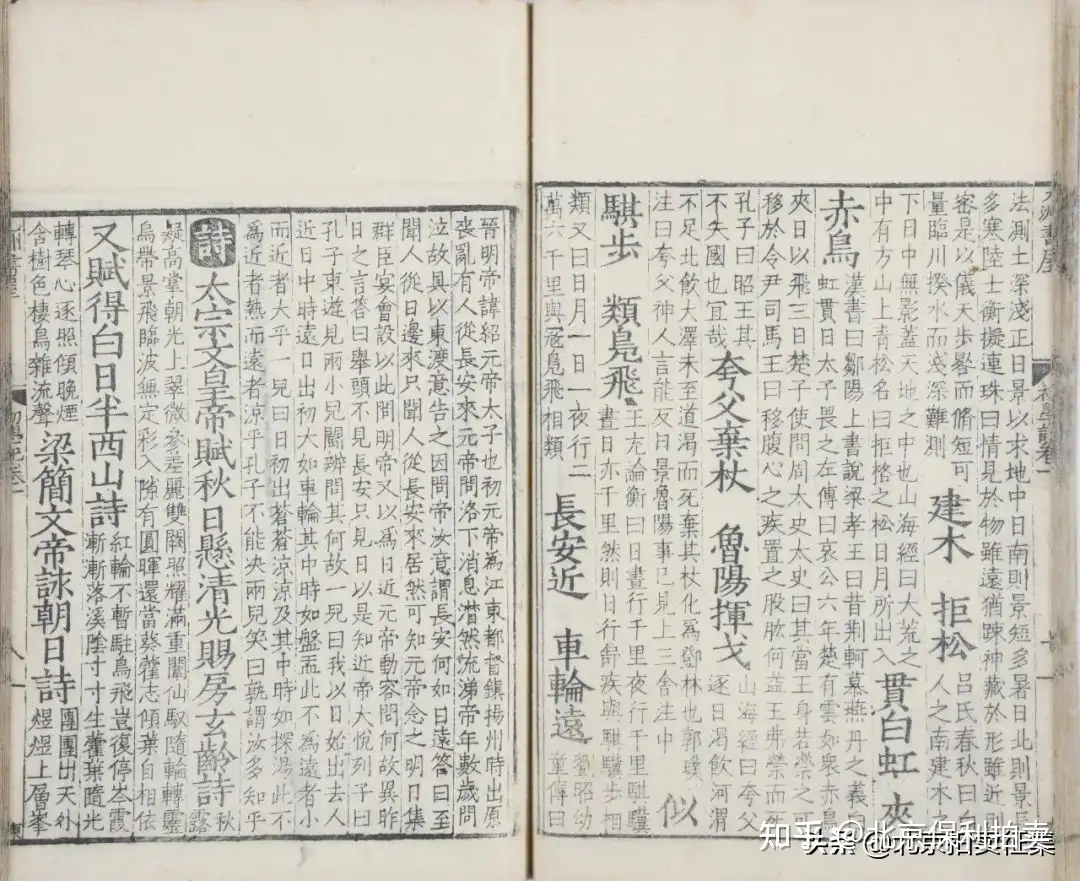 法測土深淺正日景以求地中日南則景短多暑日北則景長
多寒陸士衡擬連珠曰情見於物雖遠猶踈神藏於形雖近則
密是以儀天歩晷而脩短可
量臨川揆水而淺深難測
建木 拒松
呂氏春秋曰白
人之南建木之
下日中無影蓋天地之中也山海經曰大荒之
中有方山上青松名曰拒格之松日月所出入
貫白虹 夾
赤鳥
漢書曰鄒陽上書說梁孝王曰昔荆軻慕燕丹之義白
虹貫日太子畏之左傳曰哀公六年楚有雲如衆赤鳥
夾日以飛三日楚子使問周太史太史曰其當王身若禜之可
移於令尹司馬王曰移腹心之疾置之股肱何益王弗禜而然
孔子曰昭王其
不失國也宜哉
夸父棄杖 魯陽揮戈
山海經曰夸父
逐日渴飲河渭
不足北飲大澤未至道渴而死棄其杖化為鄧林也郭璞
注曰夸父神人言能及日景魯陽事已見上三舍注中
似
騏歩 類鳧飛
王充論衡曰日晝行千里夜行千里騏驥
晝日亦千里然則日行舒疾與騏驥步相
類又曰日月一日一夜行二
萬六千里與鳧飛相類
長安近 車輪遠
劉昭幼
童傳曰
晉明帝諱紹元帝太子也初元帝為江東都督鎮揚州時出原
喪亂有人從長安來元帝問洛下消息潸然流涕帝年數歲問
泣故具以東渡意告之因問帝汝意謂長安何如日遠答曰至
聞人從日邊來只聞人從長安來居然可知元帝念之明日集
群臣宴會設以此問明帝又以為日近元帝動容問何故異昨
日之言答曰舉頭不見長安只見日以是知近帝大悅列子曰
孔子東遊見兩小兒鬪辨問其何故一兒曰我以日始出去人
近日中時遠日出初大如車輪其中時如盤盂此不為遠者小
而近者大乎一兒曰日初出蒼蒼涼涼及其中時如探湯此不
為近者熱而遠者涼乎孔子不能決兩兒笑曰孰謂汝多知乎
詩 太宗文皇帝賦秋日懸清光賜房玄齡詩
秋
露
凝高掌朝光上翠微參差麗雙闕照耀滿重闈仙馭隨輪轉靈
烏帶景飛臨波無定彩入隙有圓暉還當葵藿志傾葉自相依
又賦得白日半西山詩
紅輪不暫駐烏飛豈復停岑霞
漸漸落溪陰寸寸生藿葉隨光
轉葵心逐照傾晚煙
含樹色棲鳥雜流聲
梁簡文帝詠朝日詩
團團出天外
煜煜上層峯
初學記卷一
知乎 @北京保利拍卖